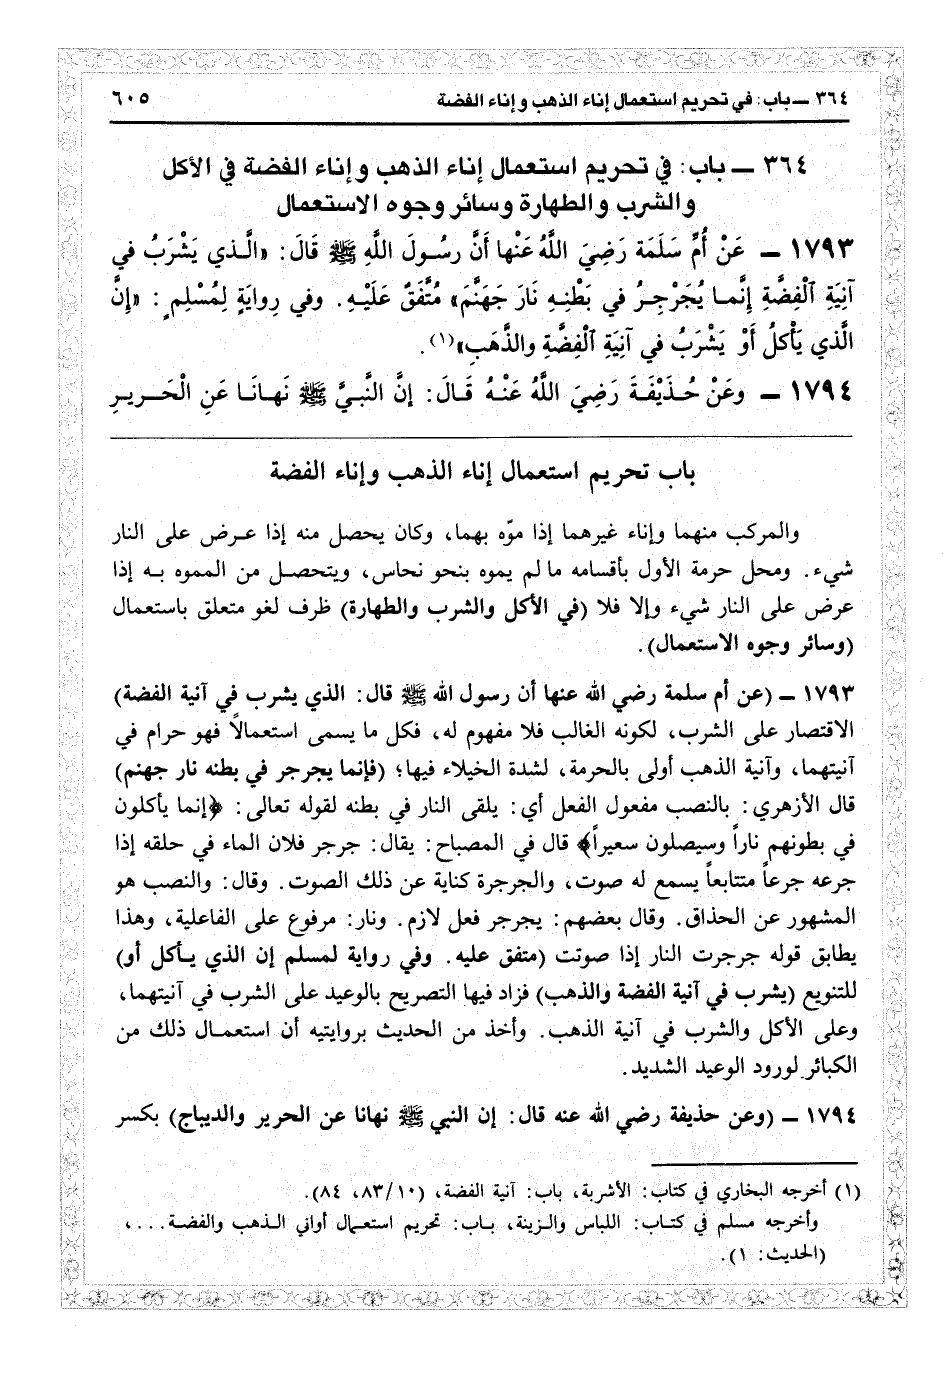 ٣٦٤ ــ باب: في تحريم استعمال إناء الذهب وإناء الفضة
٦٠٥
٣٦٤ ــ باب: في تحريم استعمال إناء الذهب وإناء الفضة في الأكل
والشرب والطهارة وسائر وجوه الاستعمال
١٧٩٣ ــ عَنْ أُمِّ سَلَمَة رَضِيَ اللَّهُ عَنْها أَنَّ رسُولَ اللَّهِ ﷺ قَالَ: «الَّذي يَشْرَبُ في
آنِيَةِ ٱلْفِضَّةِ إِنَّما يُجَرْجِرُ في بَطْنِهِ نَارَ جَهَنَّمَ» مُتَّفَقٌ عَلَيْهِ. وفي رِوايَةٍ لِمُسْلِمٍ: «إنَّ
الَّذي يَأْكلُ أوْ يَشْرَبُ في آنِيَةِ ٱلْفِضَّةِ والذَّهَبِ»(١).
١٧٩٤ ــ وعَنْ حُذَيْفَةَ رَضِيَ اللَّهُ عَنْهُ قَالَ: إنَّ النَّبيَّ ﷺ نَهانَا عَنِ الْحَريرِ
باب تحريم استعمال إناء الذهب وإناء الفضة
والمركب منهما وإناء غيرهما إذا موّه بهما، وكان يحصل منه إذا عرض على النار
شيء. ومحل حرمة الأول بأقسامه ما لم يموه بنحو نحاس، ويتحصل من المموه به إذا
عرض على النار شيء وإلا فلا (في الأكل والشرب والطهارة) ظرف لغو متعلق باستعمال
(وسائر وجوه الاستعمال).
١٧٩٣ ــ (عن أم سلمة رضي الله عنها أن رسول الله ﷺ قال: الذي يشرب في آنية الفضة)
الاقتصار على الشرب، لكونه الغالب فلا مفهوم له، فكل ما يسمى استعمالاً فهو حرام في
آنيتهما، وآنية الذهب أولى بالحرمة، لشدة الخيلاء فيها؛ (فإنما يجرجر في بطنه نار جهنم)
قال الأزهري: بالنصب مفعول الفعل أي: يلقى النار في بطنه لقوله تعالى: ﴿إنما يأكلون
في بطونهم ناراً وسيصلون سعيراً﴾ قال في المصباح: يقال: جرجر فلان الماء في حلقه إذا
جرعه جرعاً متتابعاً يسمع له صوت، والجرجرة كناية عن ذلك الصوت. وقال: والنصب هو
المشهور عن الحذاق. وقال بعضهم: يجرجر فعل لازم. ونار: مرفوع على الفاعلية، وهذا
يطابق قوله جرجرت النار إذا صوتت (متفق عليه. وفي رواية لمسلم إن الذي يأكل أو)
للتنويع (يشرب في آنية الفضة والذهب) فزاد فيها التصريح بالوعيد على الشرب في آنيتهما،
وعلى الأكل والشرب في آنية الذهب. وأخذ من الحديث بروايتيه أن استعمال ذلك من
الكبائر لورود الوعيد الشديد.
١٧٩٤ ــ (وعن حذيفة رضي الله عنه قال: إن النبي ﷺ نهانا عن الحرير والديباج) بكسر
(١) أخرجه البخاري في كتاب: الأشربة، باب: آنية الفضة، (٨٣/١٠، ٨٤).
وأخرجه مسلم في كتاب: اللباس والزينة، باب: تحريم استعمال أواني الذهب والفضة...،
(الحديث: ١).